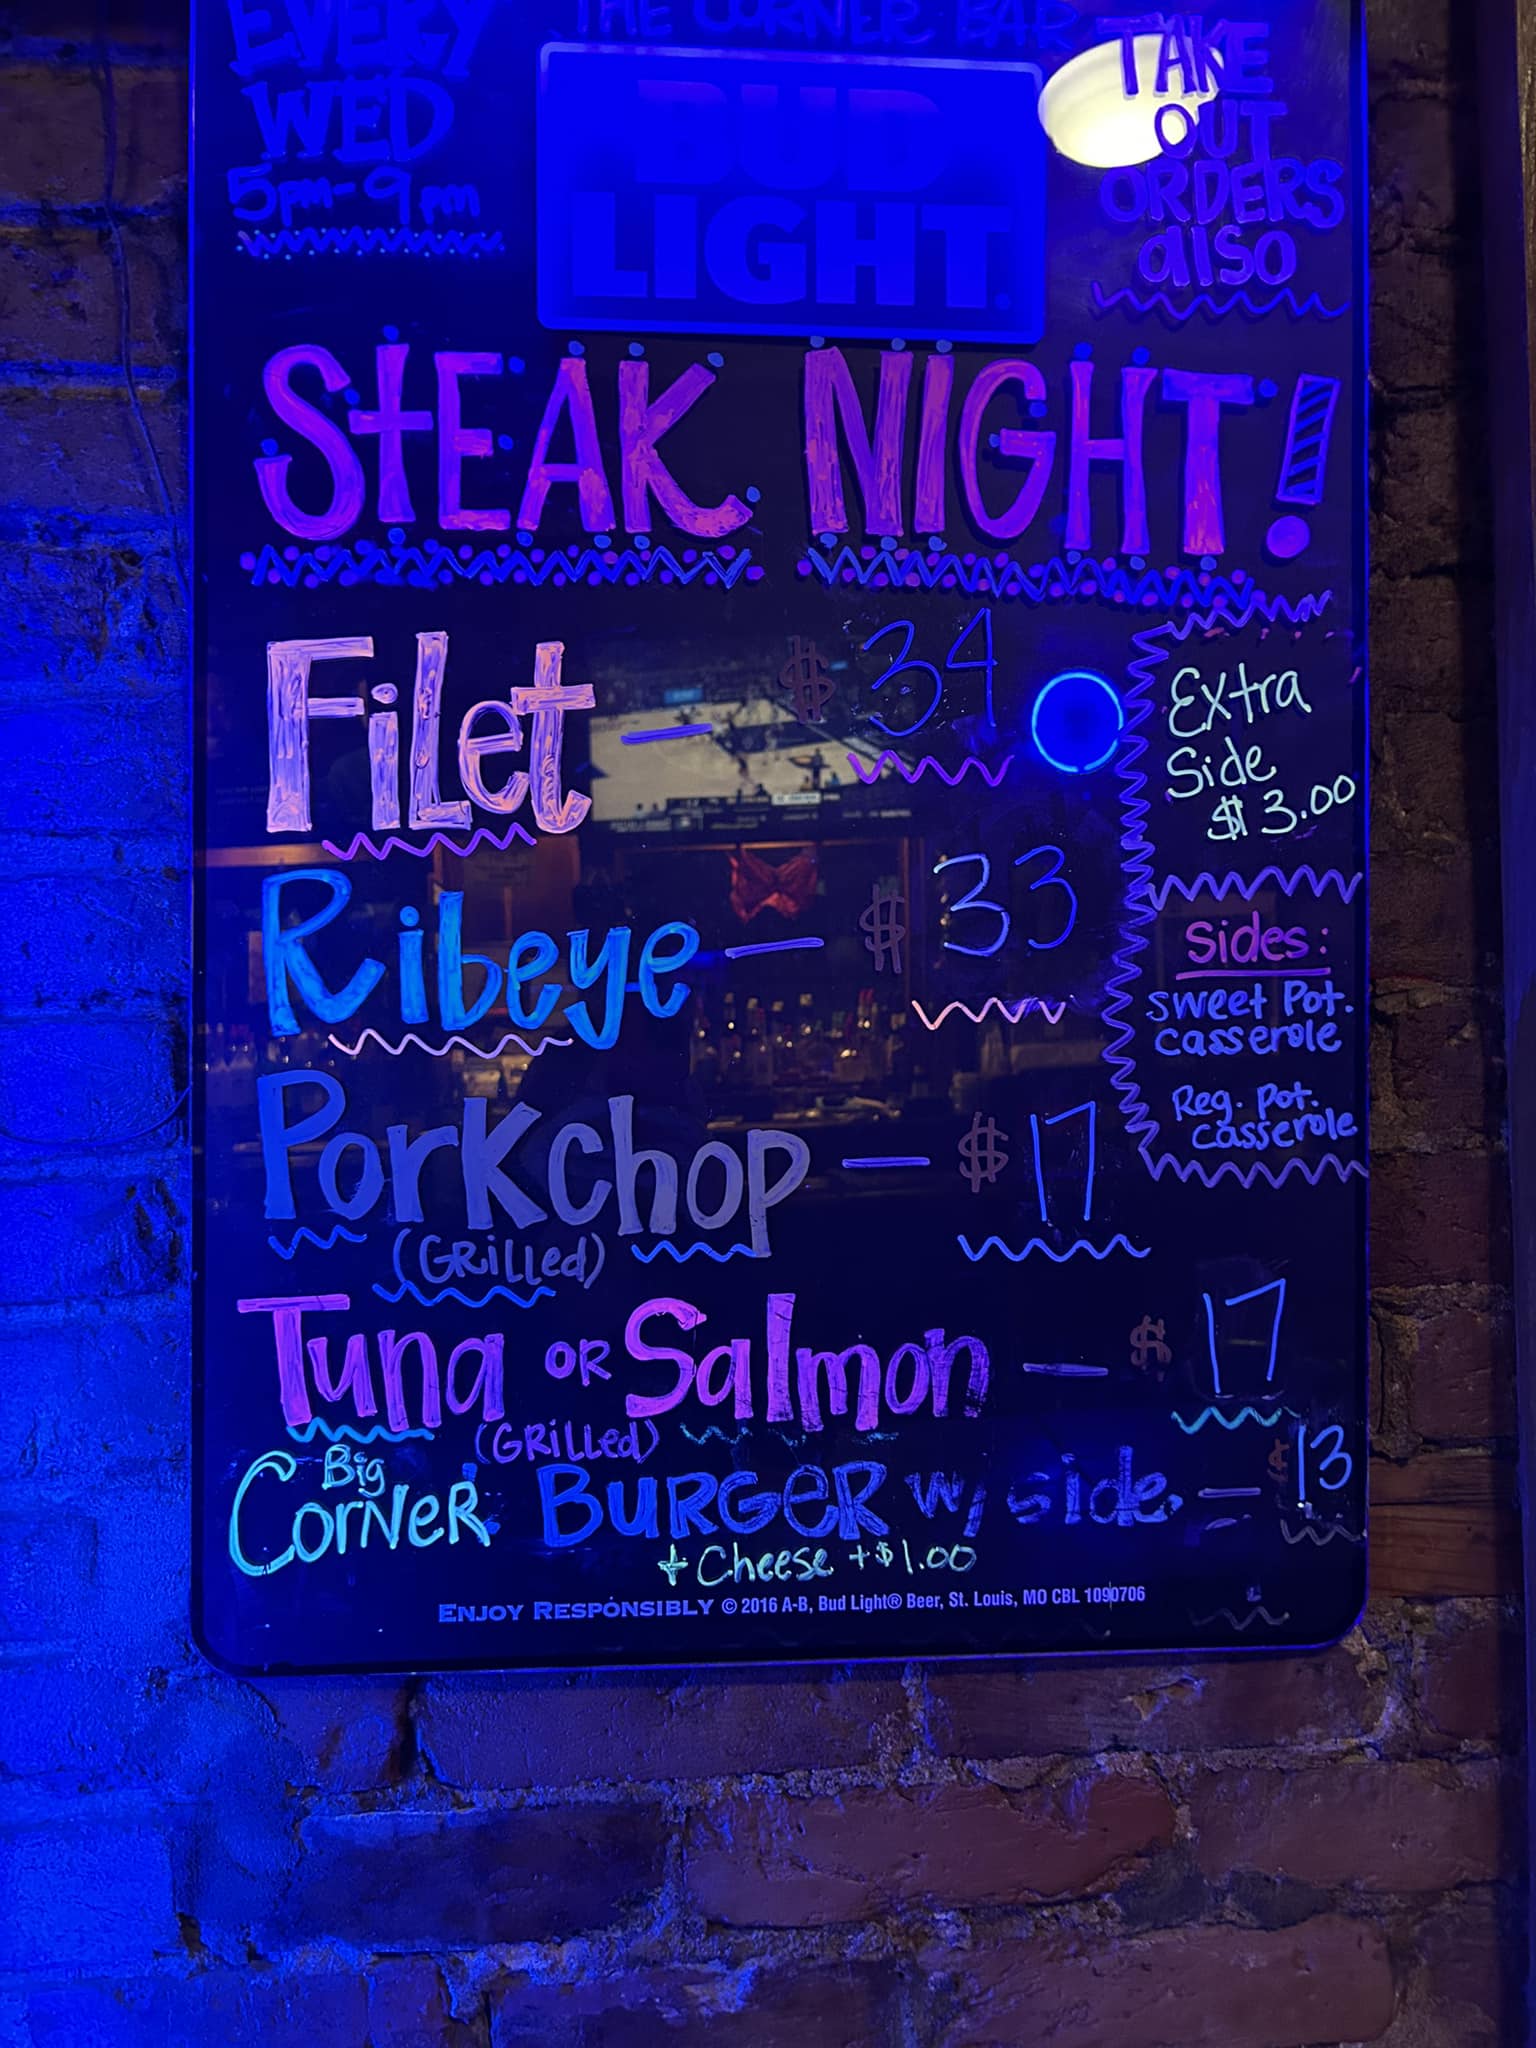 EVERY
WED
5pm-9pm
THE CORNER BAR
BUD
LIGHT
TAKE
OUT
ORDERS
also
STEAK NIGHT!
Filet - $34
Extra
Side
$3.00
Ribeye - $33
Sides:
Sweet Pot.
Casserole
Reg. Pot.
Casserole
Porkchop - $17
(Grilled)
Tuna OR Salmon - $17
(Grilled)
Big
Corner BURGER w/ side - $13
+ Cheese +$1.00
ENJOY RESPONSIBLY © 2016 A-B, Bud Light® Beer, St. Louis, MO CBL 1090706